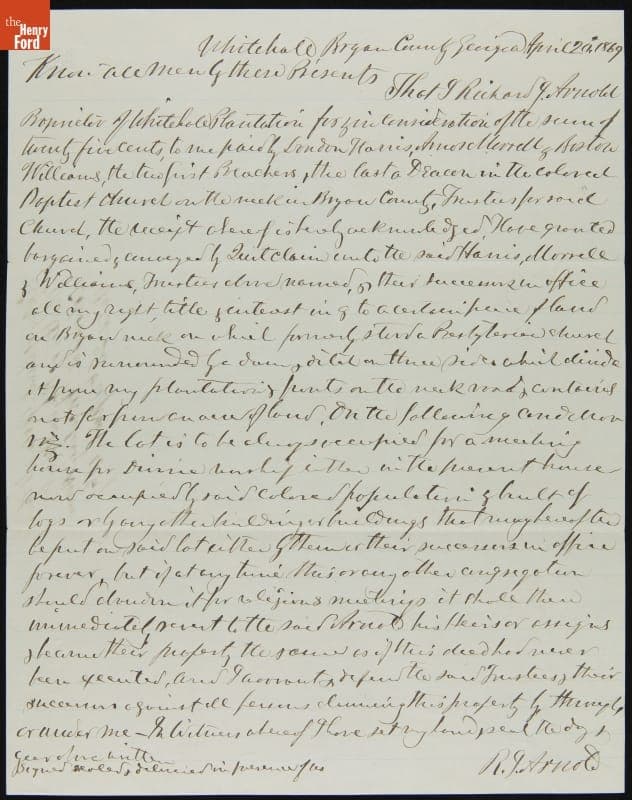 the
Henry
Ford
Whitehall Bryan County Georgia April 1869
Know all Men by these Presents
That I Richard J. Arnold
Proprietor of Whitehall Plantation for & in consideration of the sum of
twenty five cents, to me paid by London Harris, Amos Morrell & Boston
Williams, the two first Preachers, & the last a Deacon in the colored
Baptist Church on the neck in Bryan County, Trustees for said
Church, the receipt whereof is hereby acknowledged, Have granted
bargained & conveyed by Quit claim unto the said Harris, Morrell
& Williams, Trustees above named, & their successors in office
all my right, title & interest in & to a certain piece of land
on Bryan neck on which formerly stood a Presbyterian church
and is surrounded by a dam & ditch on three sides which divide
it from my plantation & fronts on the neck road, & contains
not far from an acre of land, On the following condition
viz. The lot is to be always occupied for a meeting
house for Divine worship either in the present house
now occupied by said colored population & built of
logs or by any other building or buildings that may hereafter
be put on said lot either by them or their successors in office
forever, but if at any time this or any other congregation
should abandon it for religious meetings it shall then
immediately revert to the said Arnold his heirs or assigns
& become their property the same as if this deed had never
been executed, and I warrant & defend the said Trustees & their
successors against all persons claiming this property by through
or under me — In Witness whereof I have set my hand & seal the day &
year above written
Signed sealed & delivered in presence of us
R. J. Arnold